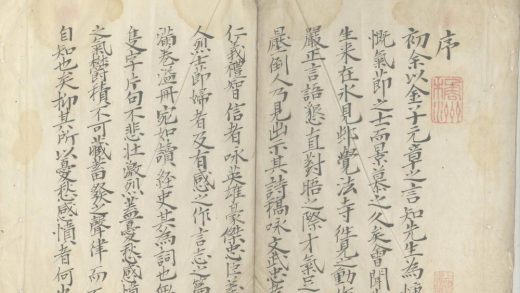 序
初余以金十元章之言知先生為慷
慨氣節之士而景慕之久矣曾聞
生来在水見邨覺法寺件見動作
嚴正言語懇直對晤之際才氣足
展倒人乃見出示其詩稿咏文武忠
仁義禮智信者咏英雄豪傑忠臣義
人烈士節婦者及有感之作言志之篇
滿卷溢冊宛如讀經史其為詞也無
隻字片句不悲壯激烈蓋憂愁感憤
之氣鬱積不可藏蓄發為聲律而不
自知也矣抑其所以憂愁感憤者何也